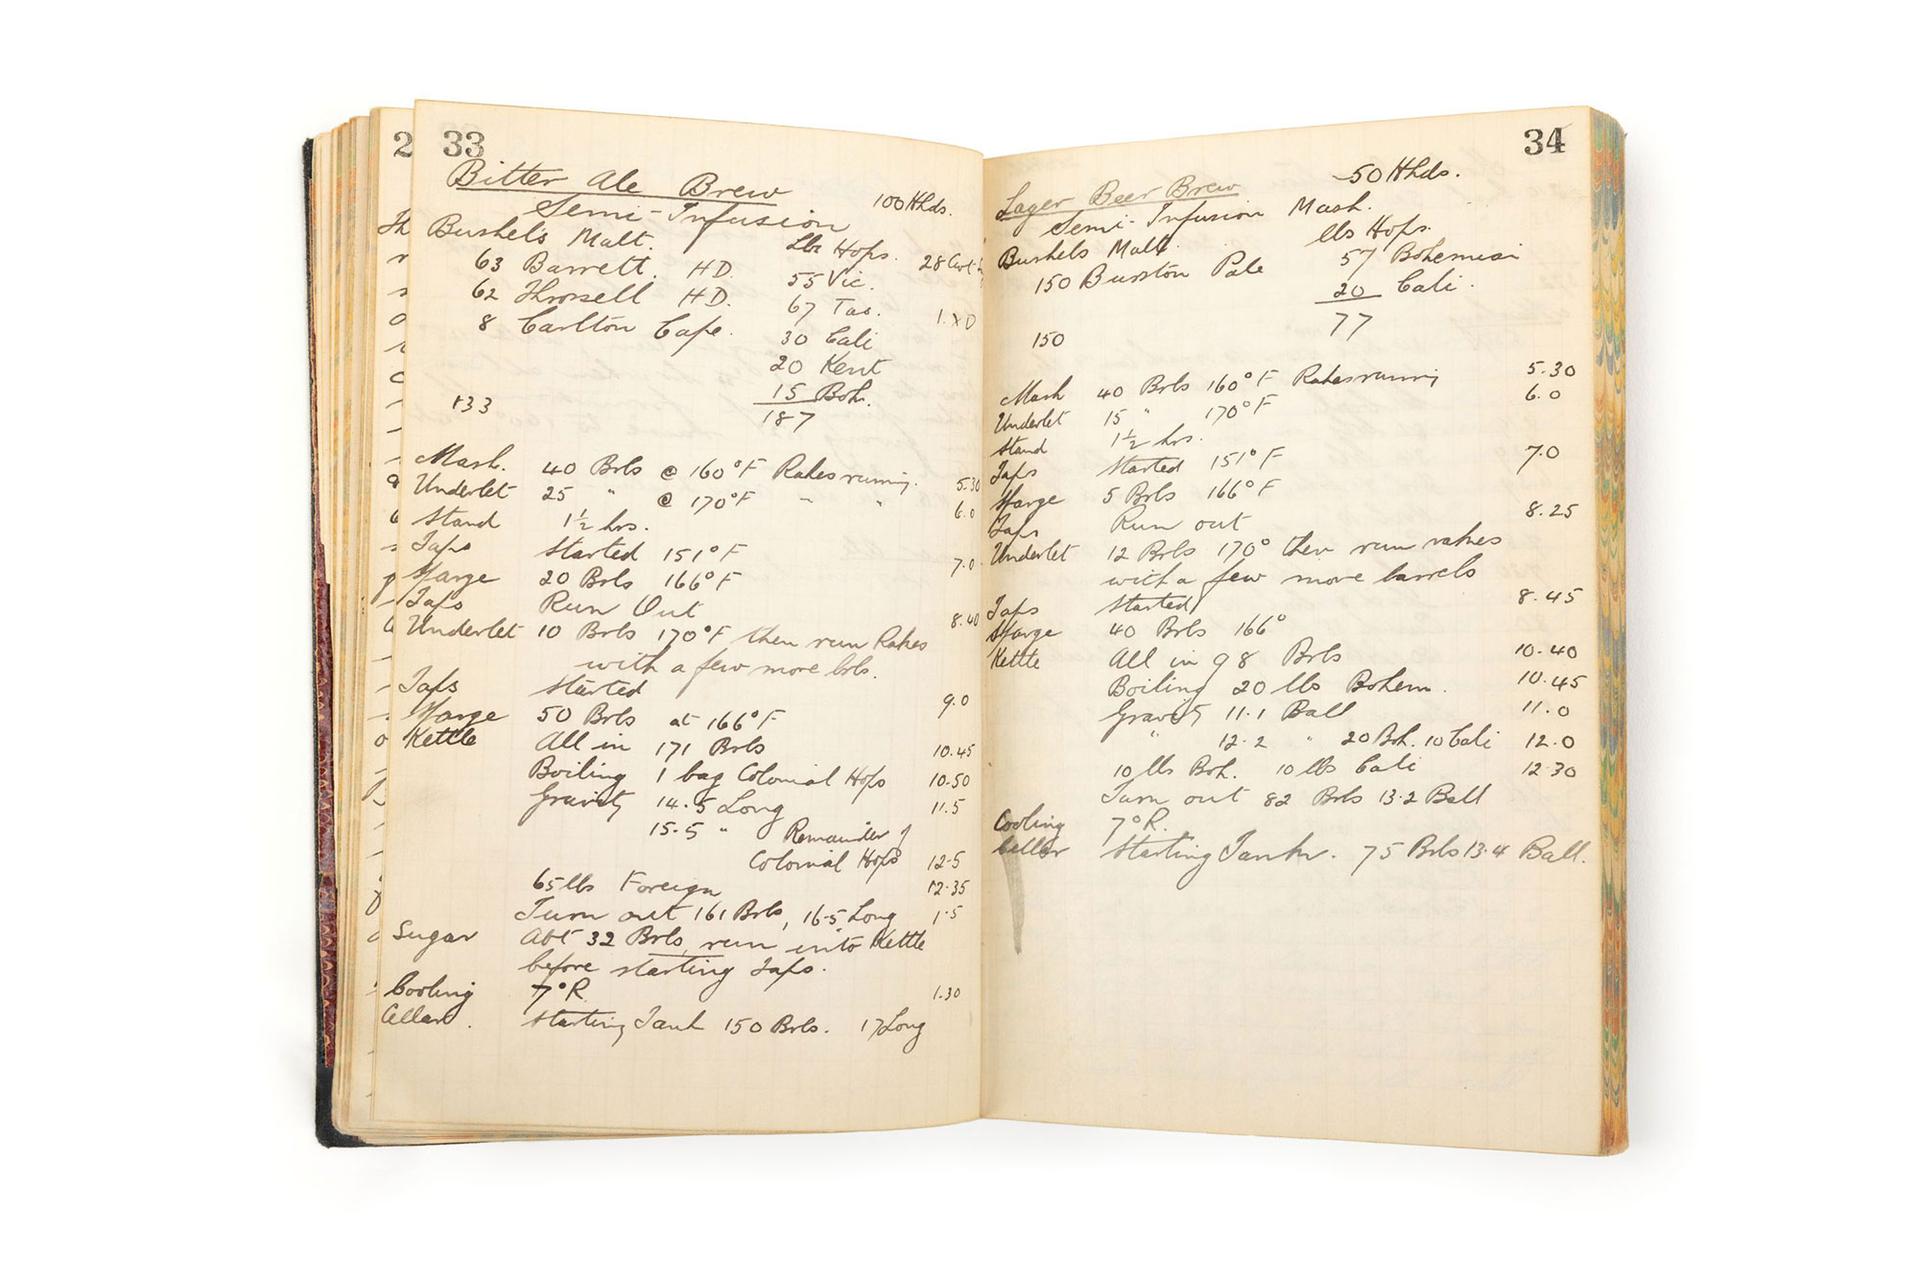 2
33
Bitter Ale Brew 100 Hhds.
Semi-Infusion
Bushels Malt. Lbs Hops. 28 Cwt
63 Barrett. HD. 55 Vic.
62 Throssell HD. 67 Tas. 1. XD
8 Carlton Cape. 30 Cali
20 Kent
15 Boh.
133 187
Mash. 40 Brls @ 160°F Rakes running. 5.30
Underlet 25 " @ 170°F " " 6.0
Stand 1½ hrs.
Taps Started 151°F 7.0
Sparge 20 Brls 166°F
Taps Run Out 8.40
Underlet 10 Brls 170°F then run Rakes
with a few more brls.
Taps Started 9.0
Sparge 50 Brls at 166°F
Kettle All in 171 Brls 10.45
Boiling 1 bag Colonial Hops 10.50
Gravity 14.5 Long 11.5
15.5 " Remainder of
Colonial Hops 12.5
65 lbs Foreign 12.35
Turn out 161 Brls, 16.5 Long 1.5
Sugar Abt 32 Brls, run into Kettle
before starting Taps.
Cooling 7°R 1.30
Cellar. Starting Tank 150 Brls. 17 Long
34
Lager Beer Brew 50 Hhds.
Semi-Infusion Mash.
Bushels Malt. lbs Hops.
150 Burston Pale 57 Bohemian
20 Cali.
150 77
Mash 40 Brls 160°F Rakes running 5.30
Underlet 15 " 170°F 6.0
Stand 1½ hrs.
Taps Started 151°F 7.0
Sparge 5 Brls 166°F
Taps Run out 8.25
Underlet 12 Brls 170° then run rakes
with a few more barrels
Taps Started 8.45
Sparge 40 Brls 166°
Kettle All in 98 Brls 10.40
Boiling 20 lbs Bohem. 10.45
Gravity 11.1 Ball 11.0
" 12.2 " 20 Boh. 10 Cali 12.0
10 lbs Boh. 10 lbs Cali 12.30
Turn out 82 Brls 13.2 Ball
Cooling 7°R.
Cellar Starting Tank. 75 Brls 13.4 Ball.